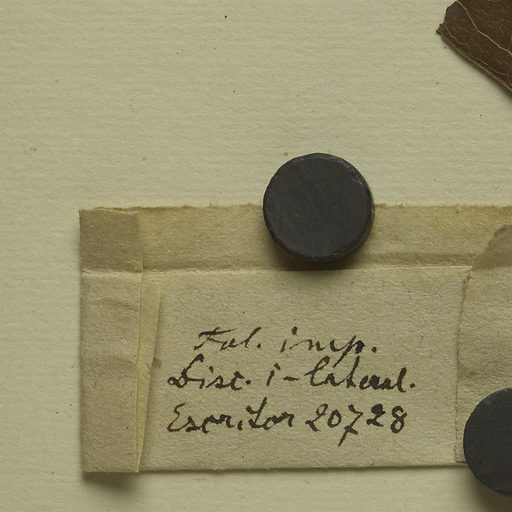 Fol. imp.
Disc. 1-lateral.
Escritor 20728